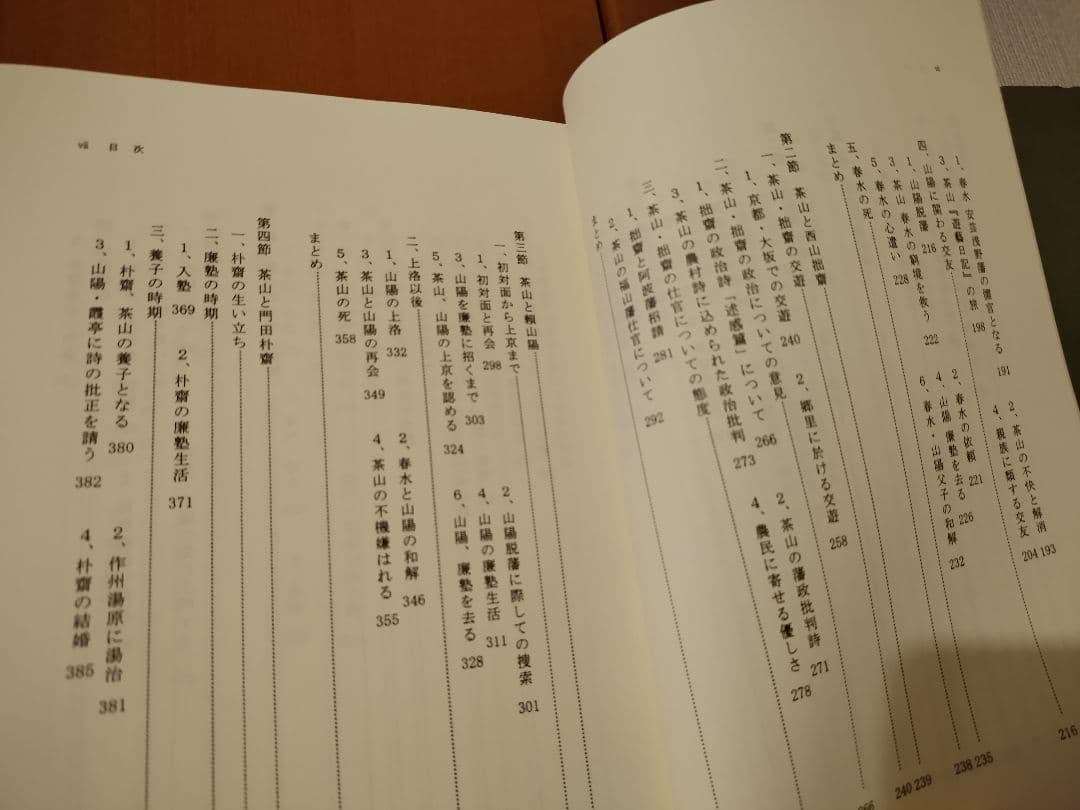 vi
1、春水 安芸浅野藩の儒官となる 191
2、茶山の不快と解消 193
3、茶山『遊藝日記』の旅 198
4、親族に類する交友 204
四、山陽に関わる交友 216
1、山陽脱藩 216
2、春水の依頼 221
3、茶山 春水の窮境を救う 222
4、山陽 廉塾を去る 226
5、春水の心遣い 228
6、春水・山陽父子の和解 232
五、春水の死 235
まとめ 238
第二節 茶山と西山拙齋 239
一、茶山・拙齋の交遊 240
1、京都・大坂での交遊 240
2、郷里に於ける交遊 258
二、茶山・拙齋の政治についての意見 266
1、拙齋の政治詩「述感篇」について 266
2、茶山の藩政批判詩 271
3、茶山の農村詩に込められた政治批判 273
4、農民に寄せる優しさ 278
三、茶山・拙齋の仕官についての態度
1、拙齋と阿波藩招請 281
2、茶山の福山藩仕官について 292
まとめ
vii 目次
第三節 茶山と頼山陽
一、初対面から上京まで
1、初対面と再会 298
2、山陽脱藩に際しての捜索 301
3、山陽を廉塾に招くまで 303
4、山陽の廉塾生活 311
5、茶山、山陽の上京を認める 324
6、山陽、廉塾を去る 328
二、上洛以後
1、山陽の上洛 332
2、春水と山陽の和解 346
3、茶山と山陽の再会 349
4、茶山の不機嫌はれる 355
5、茶山の死 358
まとめ
第四節 茶山と門田朴齋
一、朴齋の生い立ち
二、廉塾の時期
1、入塾 369
2、朴齋の廉塾生活 371
三、養子の時期
1、朴齋、茶山の養子となる 380
2、作州湯原に湯治 381
3、山陽・霞亭に詩の批正を請う 382
4、朴齋の結婚 385